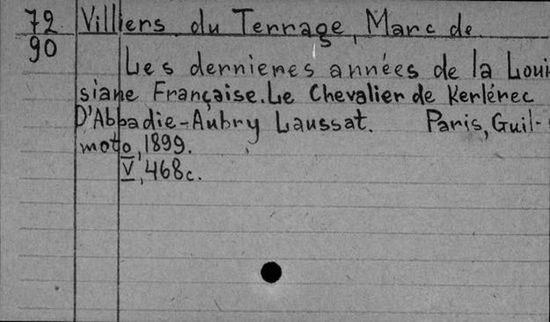 72 Villiers du Terrage, Marc de
90 Les dernieres années de la Loui
siane Française. Le Chevalier de Kerlérec
D'Abbadie-Aubry Laussat. Paris, Guil-
moto, 1899.
V, 468c.